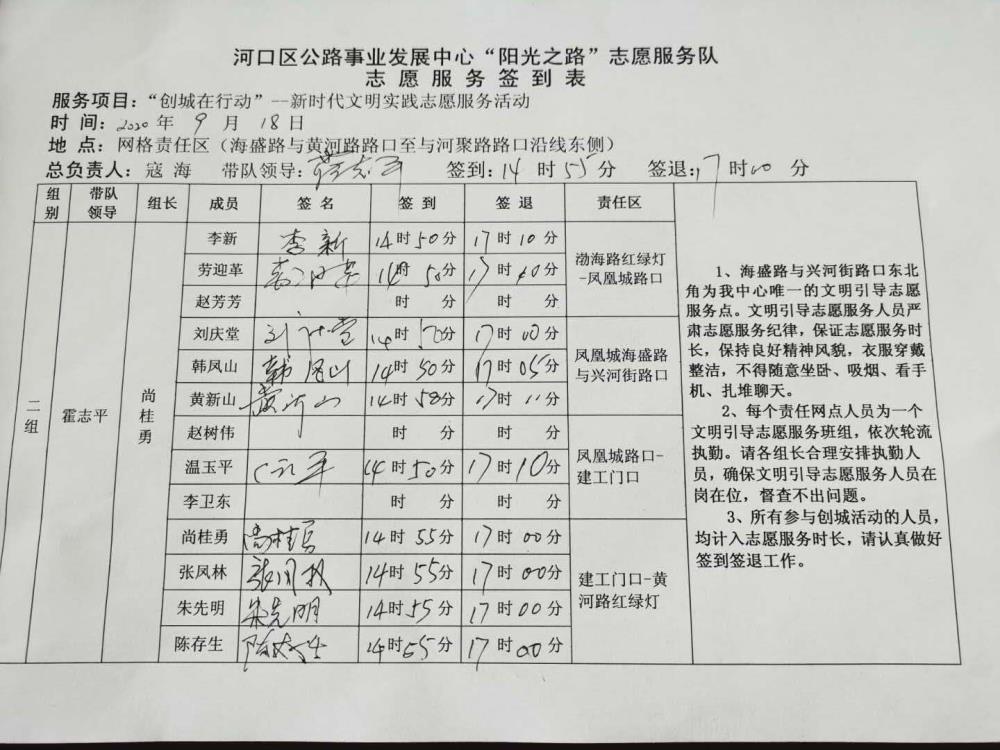 河口区公路事业发展中心“阳光之路”志愿服务队
志愿服务签到表
服务项目：“创城在行动”--新时代文明实践志愿服务活动
时 间：2020 年 9 月 18 日
地 点：网格责任区（海盛路与黄河路路口至与河聚路路口沿线东侧）
总负责人：寇 海 带队领导： 签到：14 时 55 分 签退：17 时 00 分
组别 带队领导 组长 成员 签名 签到 签退 责任区
二组 霍志平 尚桂勇
李新 李新 14时50分 17时10分
劳迎革 14时50分 17时 分
渤海路红绿灯
-凤凰城路口
赵芳芳 时 分 时 分
刘庆堂 14时 分 17时00分
韩凤山 韩凤山 14时50分 17时05分
凤凰城海盛路
与兴河街路口
黄新山 黄新山 14时58分 17时11分
赵树伟 时 分 时 分
温玉平 14时50分 17时10分
凤凰城路口-
建工门口
李卫东 时 分 时 分
尚桂勇 尚桂勇 14时55分 17时00分
张凤林 14时55分 17时00分
建工门口-黄
河路红绿灯
朱先明 朱先明 14时55分 17时00分
陈存生 陈存生 14时55分 17时00分
1、海盛路与兴河街路口东北
角为我中心唯一的文明引导志愿
服务点。文明引导志愿服务人员严
肃志愿服务纪律，保证志愿服务时
长，保持良好精神风貌，衣服穿戴
整洁，不得随意坐卧、吸烟、看手
机、扎堆聊天。
2、每个责任网点人员为一个
文明引导志愿服务班组，依次轮流
执勤。请各组长合理安排执勤人
员，确保文明引导志愿服务人员在
岗在位，督查不出问题。
3、所有参与创城活动的人员，
均计入志愿服务时长，请认真做好
签到签退工作。